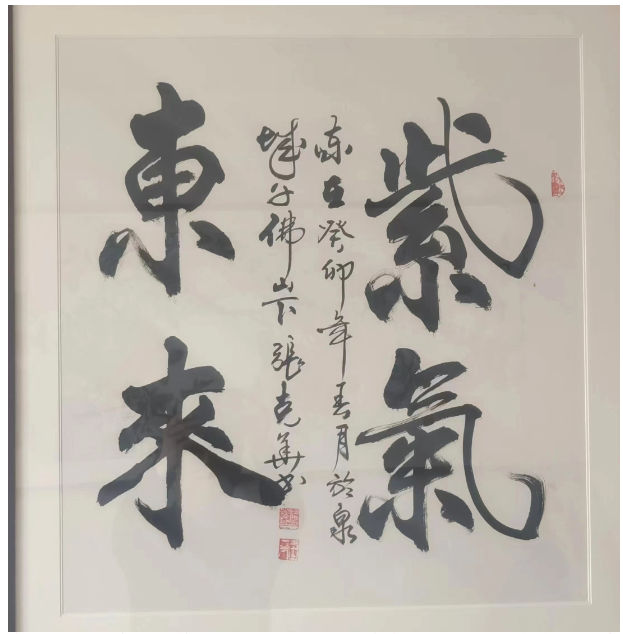 紫氣
東來
岁在癸卯年春月於泉
城千佛山下張克華书